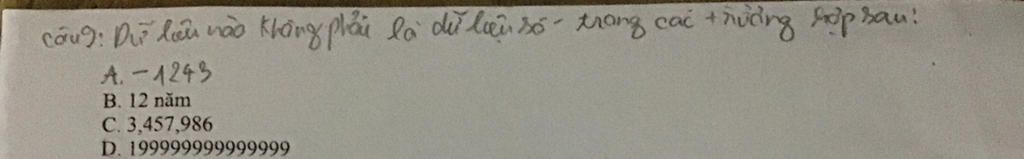 câu 9: Dữ liệu nào không phải là dữ liệu số - trong các trường hợp sau:
A. -1243
B. 12 năm
C. 3,457,986
D. 199999999999999